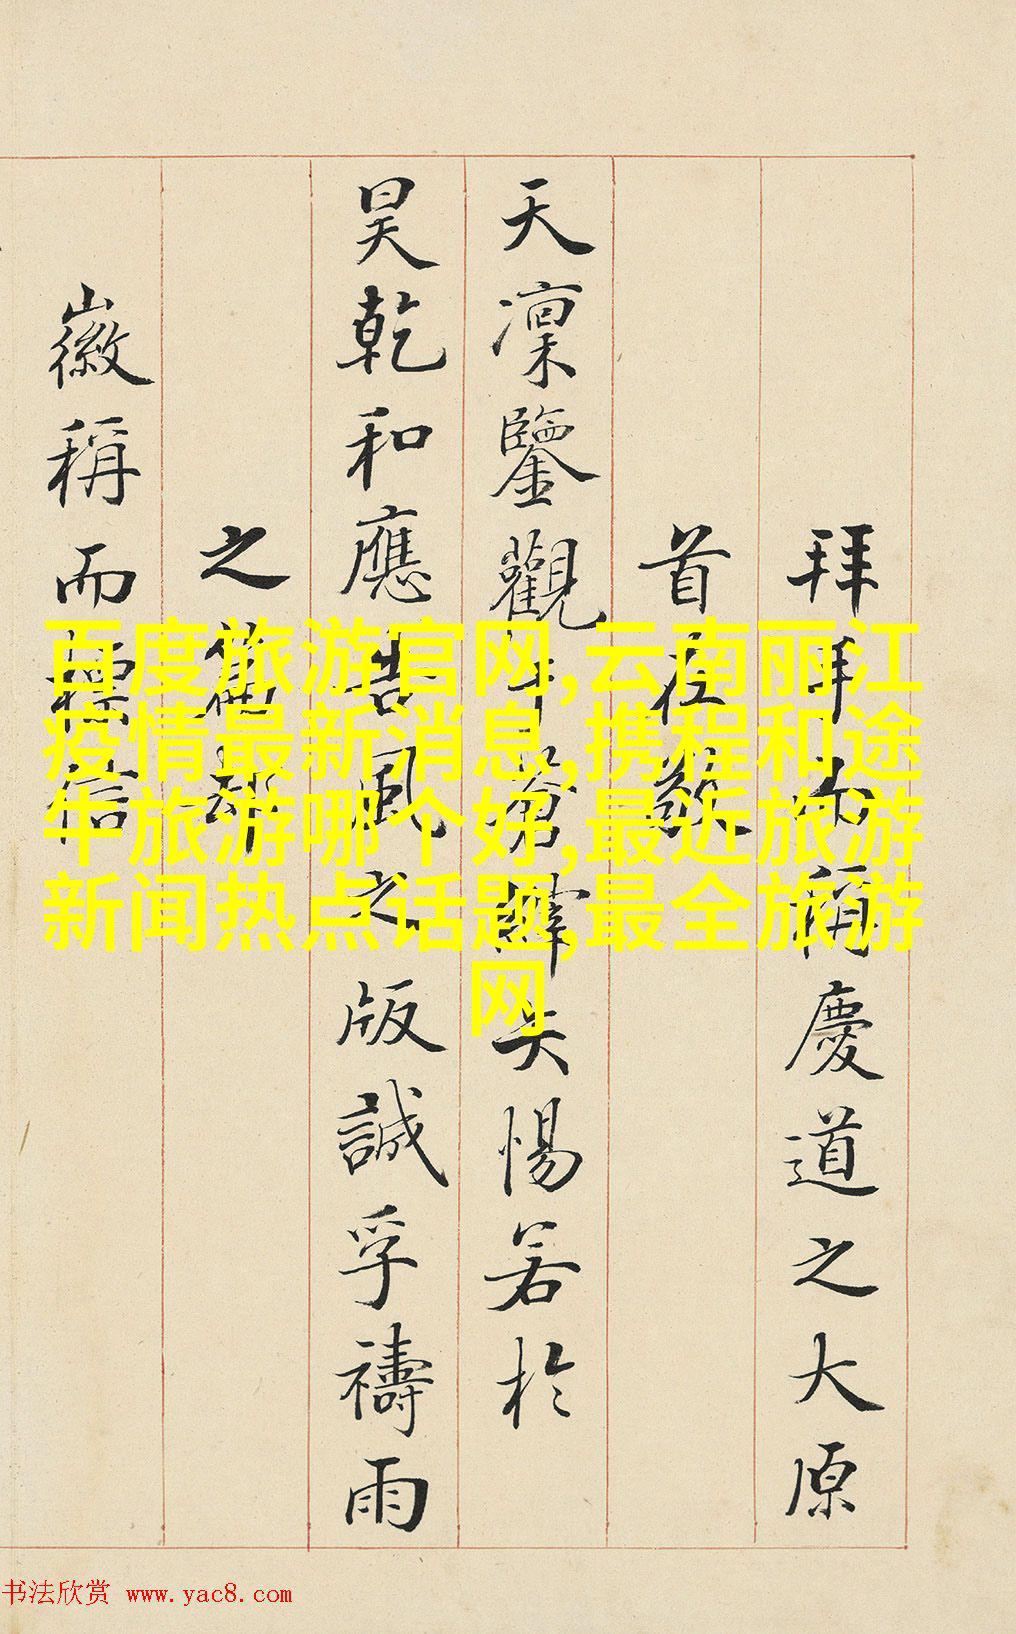 拜而稱慶道之大原
首在
天凜鑒觀矣惕若於
昊乾和應告風之版誠孚禱雨
之
徽稱而信
百度旅游官网,云南丽江
疫情最新消息,携程和途
牛旅游哪个好,最近旅游
新闻热点话题,最全旅游
网
书法欣赏 www.yac8.com